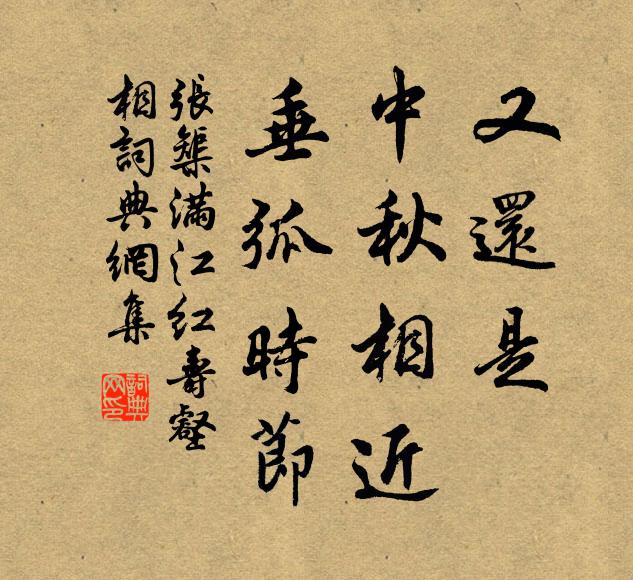 又還是
中秋相近
垂弧時節
張榘滿江红壽壑
相詞典網集
詞典
网印